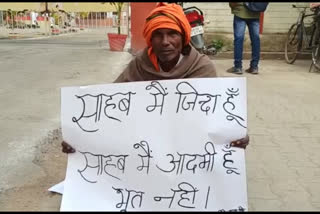 साहब मैं जिंदा हूँ
साहब मैं आदमी हूँ
भूत नही।